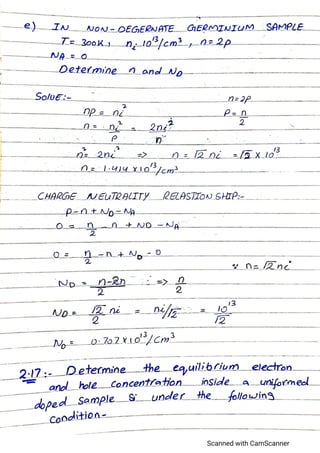 e) IN NON-DEGERNATE GERMINIUM SAMPLE
T= 300K, ni 10^13/cm³, n= 2p
NA = 0
Determine n and ND
Solve:- n=2p
np = ni² P = n/2
n = ni²/P = 2ni²/n
n² = 2ni² => n = √2 ni = √2 x 10^13
n = 1.414 x 10^13/cm³
CHARGE NEUTRALITY RELASTION SHIP:-
p-n + ND - NA
0 = n/2 - n + ND - NA
0 = n/2 - n + ND - 0
∵ n= √2 ni
ND = n-2n/2 => n/2
ND = √2 ni/2 = ni/√2 = 10^13/√2
ND = 0.707 x 10^13/cm³
2.17:- Determine the equilibrium electron
and hole concentration inside a uniformed
doped sample Si under the following
condition-
Scanned with CamScanner